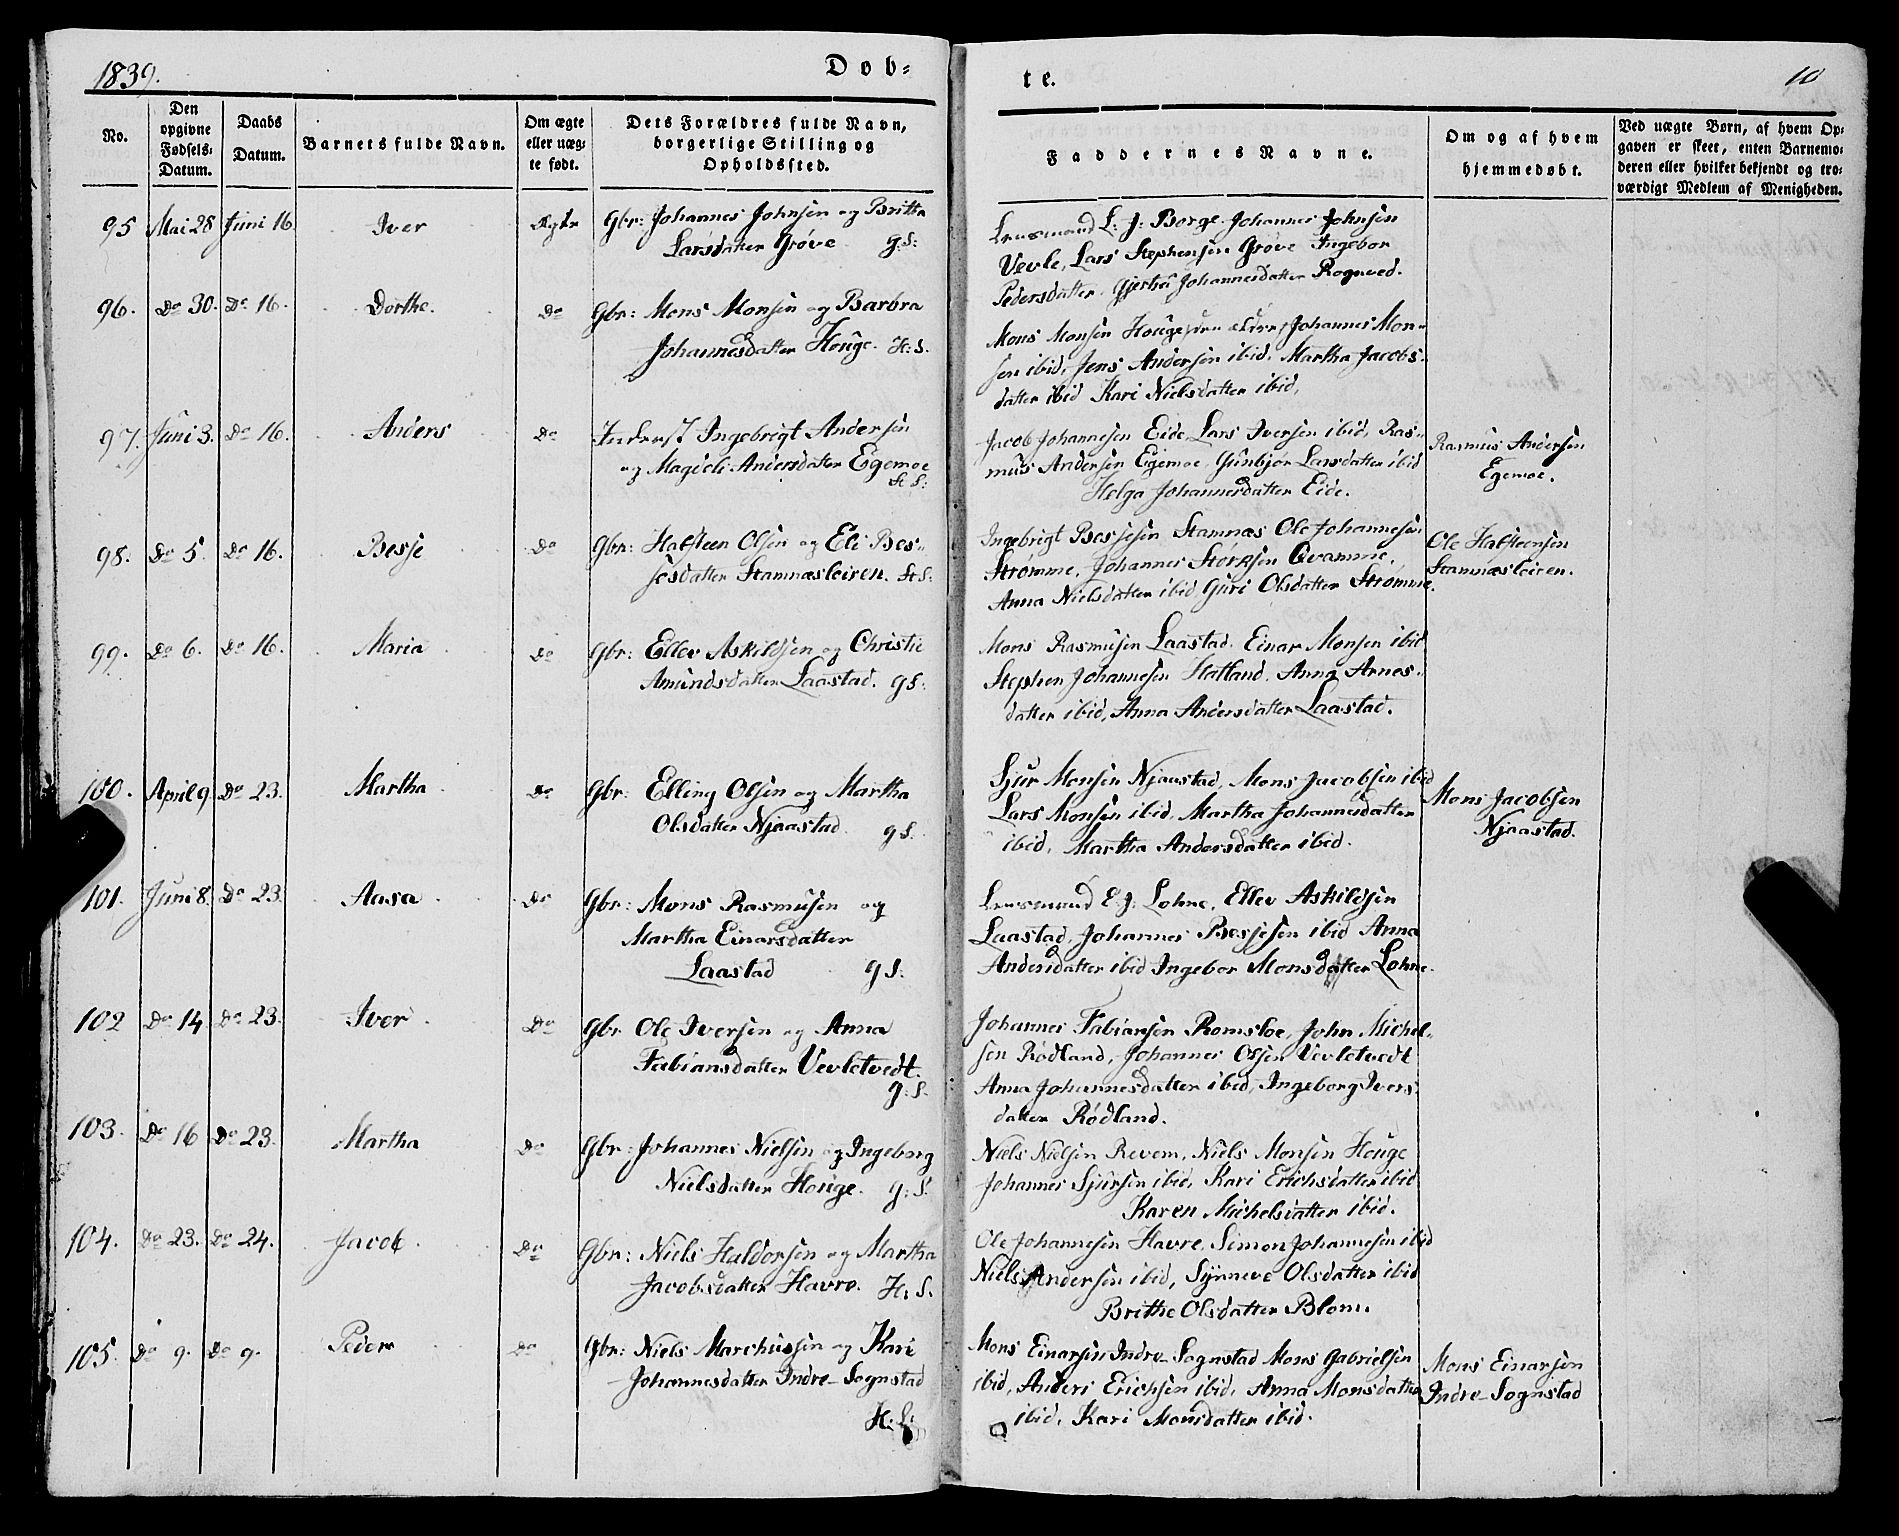 1839.
Dob-
te.
10
No.
Den opgivne Fødsels-Datum.
Daabs Datum.
Barnets fulde Navn.
Om ægte eller uæg-te født.
Dets Forældres fulde Navn, borgerlige Stilling og Opholdssted.
Faddernes Navne.
Om og af hvem hjemmedøbt.
Ved uægte Børn, af hvem Op-gaven er skeet, enten Barnemo-deren eller hvilket bekjendt og tro-værdigt Medlem af Menigheden.
95 Mai 28 Juni 16 Iver Ægte Gbr: Johannes Johnsen og Britta
Larsdatter Grøve g:S:
Lensmand L: J: Borge. Johannes Johnsen
Vevle, Lars Stephensen Grøve Ingebor
Pedersdatter. Gjertru Johannesdatter Rogneved.
96. Do 30. Do 16. Dorthe. Do Gbr: Mons Monsen og Barbra
Johannesdatter Houge. H:S.
Mons Monsen Houge, den ældre, Johannes Mon-
sen ibid, Jens Andersen ibid. Martha Jacobs-
datter ibid Kari Nielsdatter ibid,
97. Juni 3. Do 16. Anders Do Inderst Ingebrigt Andersen
og Magdeli Andersdatter Egemoe
St S:
Jacob Johannesen Eide, Lars Iversen ibid, Ras-
mus Andersen Egemoe, Gunbjør Larsdatter ibid
Helga Johannesdatter Eide.
Rasmus Andersen
Egemoe.
98. Do 5. Do 16. Besse Do Gbr: Halsteen Olsen og Eli Bes-
sesdatter Stamnæsleiren. St S:
Ingebrigt Bessesen Stamnæs Ole Johannesen
Strømme. Johannes Størksen Qvamme.
Anna Nielsdatter ibid Guri Olsdatter Strømme.
Ole Halsteensen
Stamnæsleiren.
99. Do 6. Do 16. Maria Do Gbr: Ellev Askildsen og Christie
Amundsdatter Laastad. g S:
Mons Rasmusen Laastad. Einar Monsen ibid
Stephen Johannesen Hatland. Anna Arnes-
datter ibid, Anna Andersdatter Laastad.
100. April 9 Do 23. Martha Do Gbr: Elling Olsen og Martha
Olsdatter Njaastad g S.
Sjur Monsen Njaastad, Mons Jacobsen ibid
Lars Monsen ibid. Martha Johannesdatter
ibid, Martha Andersdatter ibid.
Mons Jacobsen
Njaastad.
101. Juni 8. Do 23. Aasa Do Gbr: Mons Rasmusen og
Martha Einarsdatter
Laastad g S.
Lensmand E. J: Lohne. Ellev Askildsen
Laastad, Johannes Bessesen ibid Anna
Andersdatter ibid Ingebor Monsdatter Lohne.
102 Do 14. Do 23. Iver Do Gbr Ole Iversen og Anna
Fabiansdatter Vevletvedt.
g: S.
Johannes Fabiansen Romsloe, John Michel-
sen Rødland, Johannes Olsen Vevletvedt
Anna Johannesdatter ibid, Ingeborg Ivers-
datter Rødland.
103. Do 16 Do 23. Martha Do Gbr: Johannes Nielsen og Ingeborg
Nielsdatter Houge. g: S.
Niels Nielsen Revem, Niels Monsen Houge
Johannes Sjursen ibid, Kari Erichsdatter ibid
Karen Michelsdatter ibid.
104. Do 23. Do 24. Jacob Do Gbr: Niels Haldorsen og Martha
Jacobsdatter Havre. H. S.
Ole Johannesen Havre. Simon Johannesen ibid
Niels Andersen ibid, Synneve Olsdatter ibid
Brithe Olsdatter Blom.
105. Do 9. Do 9. Peder Do Gbr: Niels Marchussen og Kari
Johannesdatter Indre-Sognstad
H. S:
Mons Einarsen Indre-Sognstad Mons Gabrielsen
ibid, Anders Erichsen ibid, Anna Monsdatter
ibid, Kari Monsdatter ibid.
Mons Einarsen
Indre-Sognstad